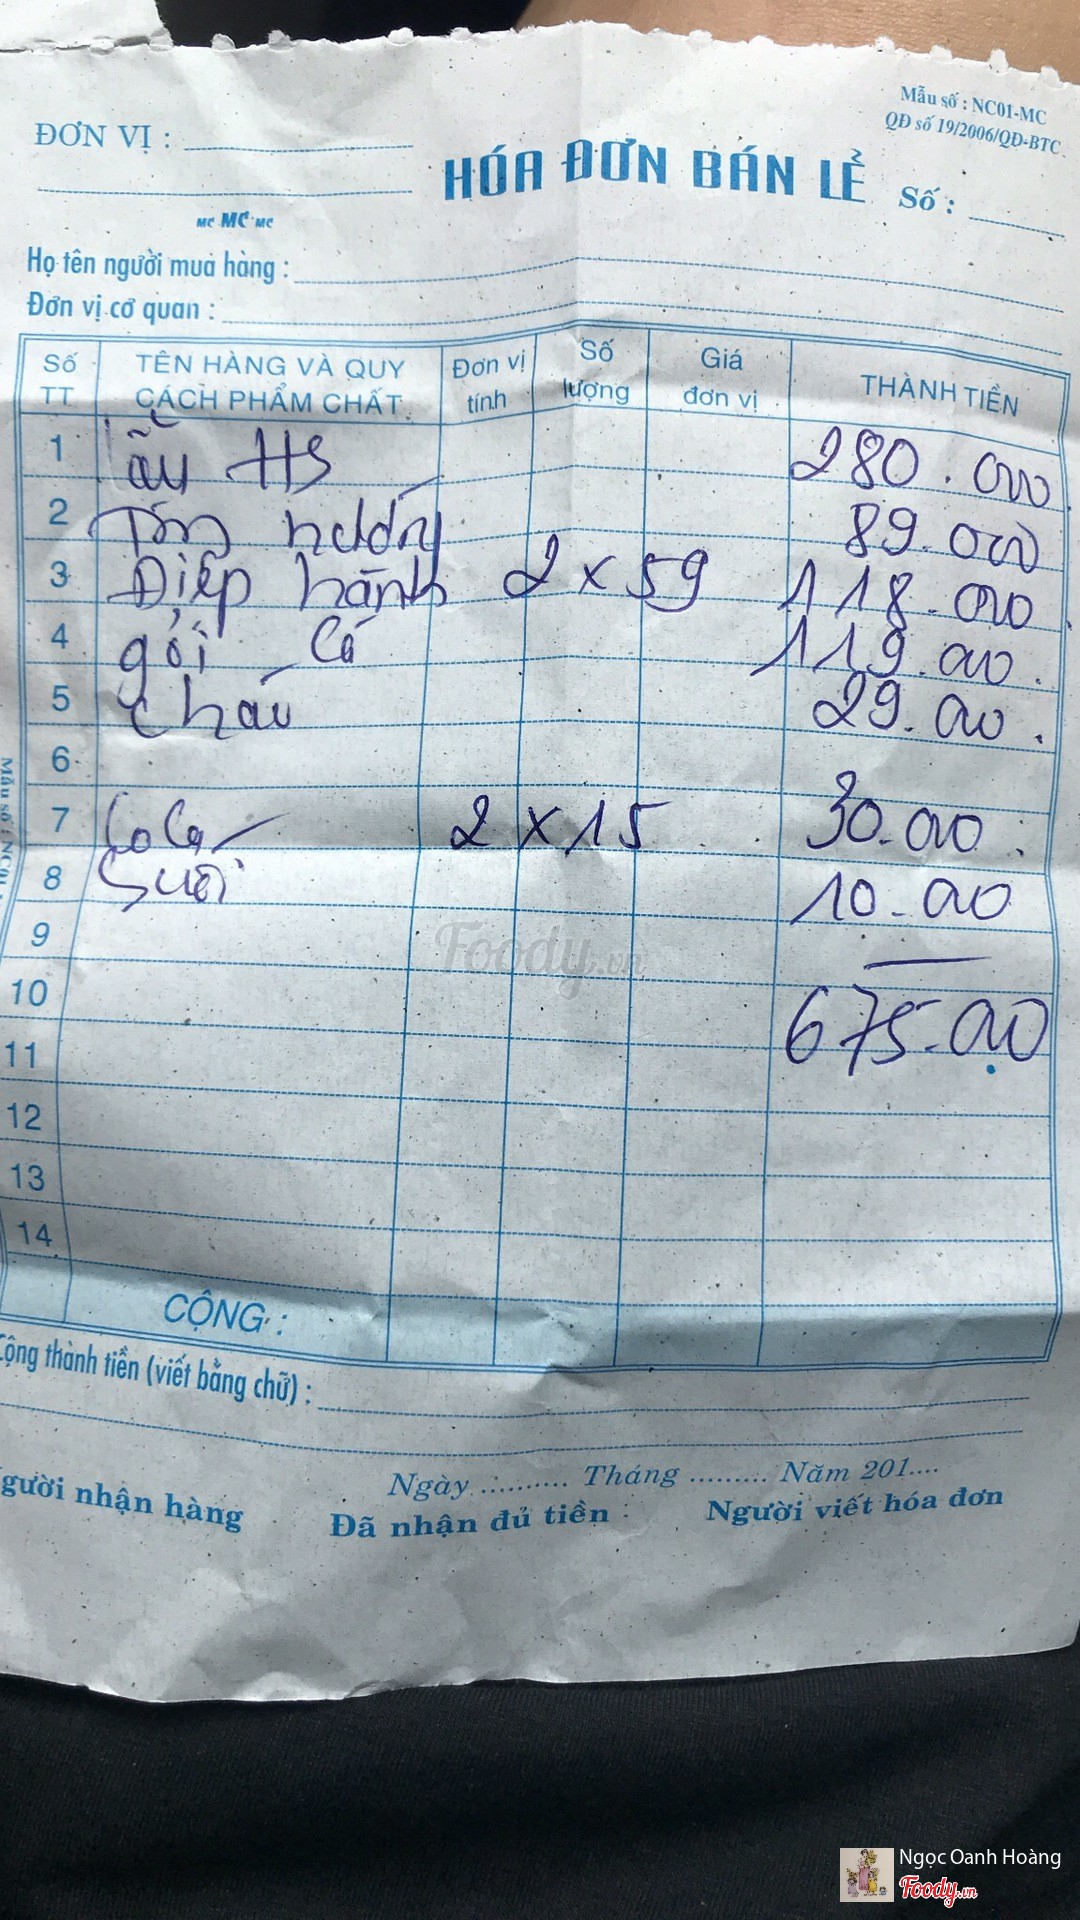 Mẫu số : NC01-MC
QĐ số 19/2006/QĐ-BTC
ĐƠN VỊ :
HÓA ĐƠN BÁN LẺ
Số :
MC MC MC
Họ tên người mua hàng :
Đơn vị cơ quan :
Số TT TÊN HÀNG VÀ QUY CÁCH PHẨM CHẤT Đơn vị tính Số lượng Giá đơn vị THÀNH TIỀN
1 Lẩu HS 280.000
2 Tôm nướng 89.000
3 Điệp hành 2 x 59 118.000
4 gỏi cá 119.000
5 cháo 29.000
6
7 CoCa 2 x 15 30.000
8 Suối 10.000
9
10 675.000
11
12
13
14
CỘNG :
Cộng thành tiền (viết bằng chữ) :
Ngày .......... Tháng ......... Năm 201....
gười nhận hàng Đã nhận đủ tiền Người viết hóa đơn
Mẫu số : NC01
Foody.vn
Ngọc Oanh Hoàng
Foody.vn